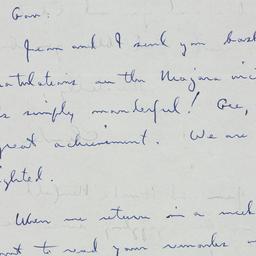 Gov:
Jean and I send you
ratulations on the Niagara
is simply wonderful! Gee,
great achievement. We are
ighted.
When we return in a week
want to read your remarks